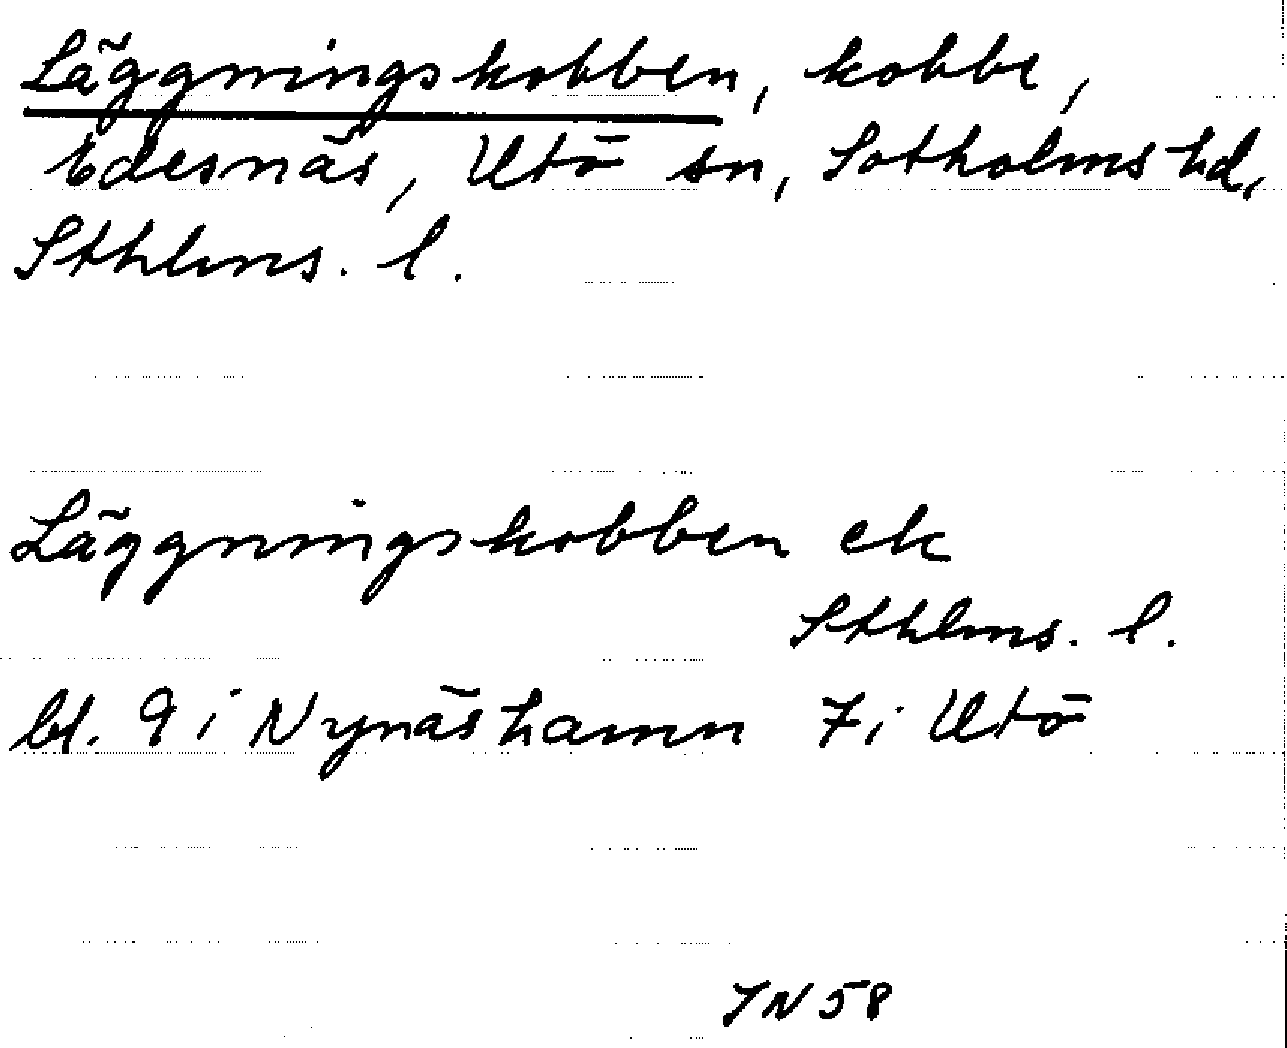 Läggningskobben, kobbe,
Edesnäs, Utö sn, Sotholms hd,
Sthlms. l.
Läggningskobben ek
Sthlms. l.
bl. 9 i Nynäshamn 7 i Utö
IN 58